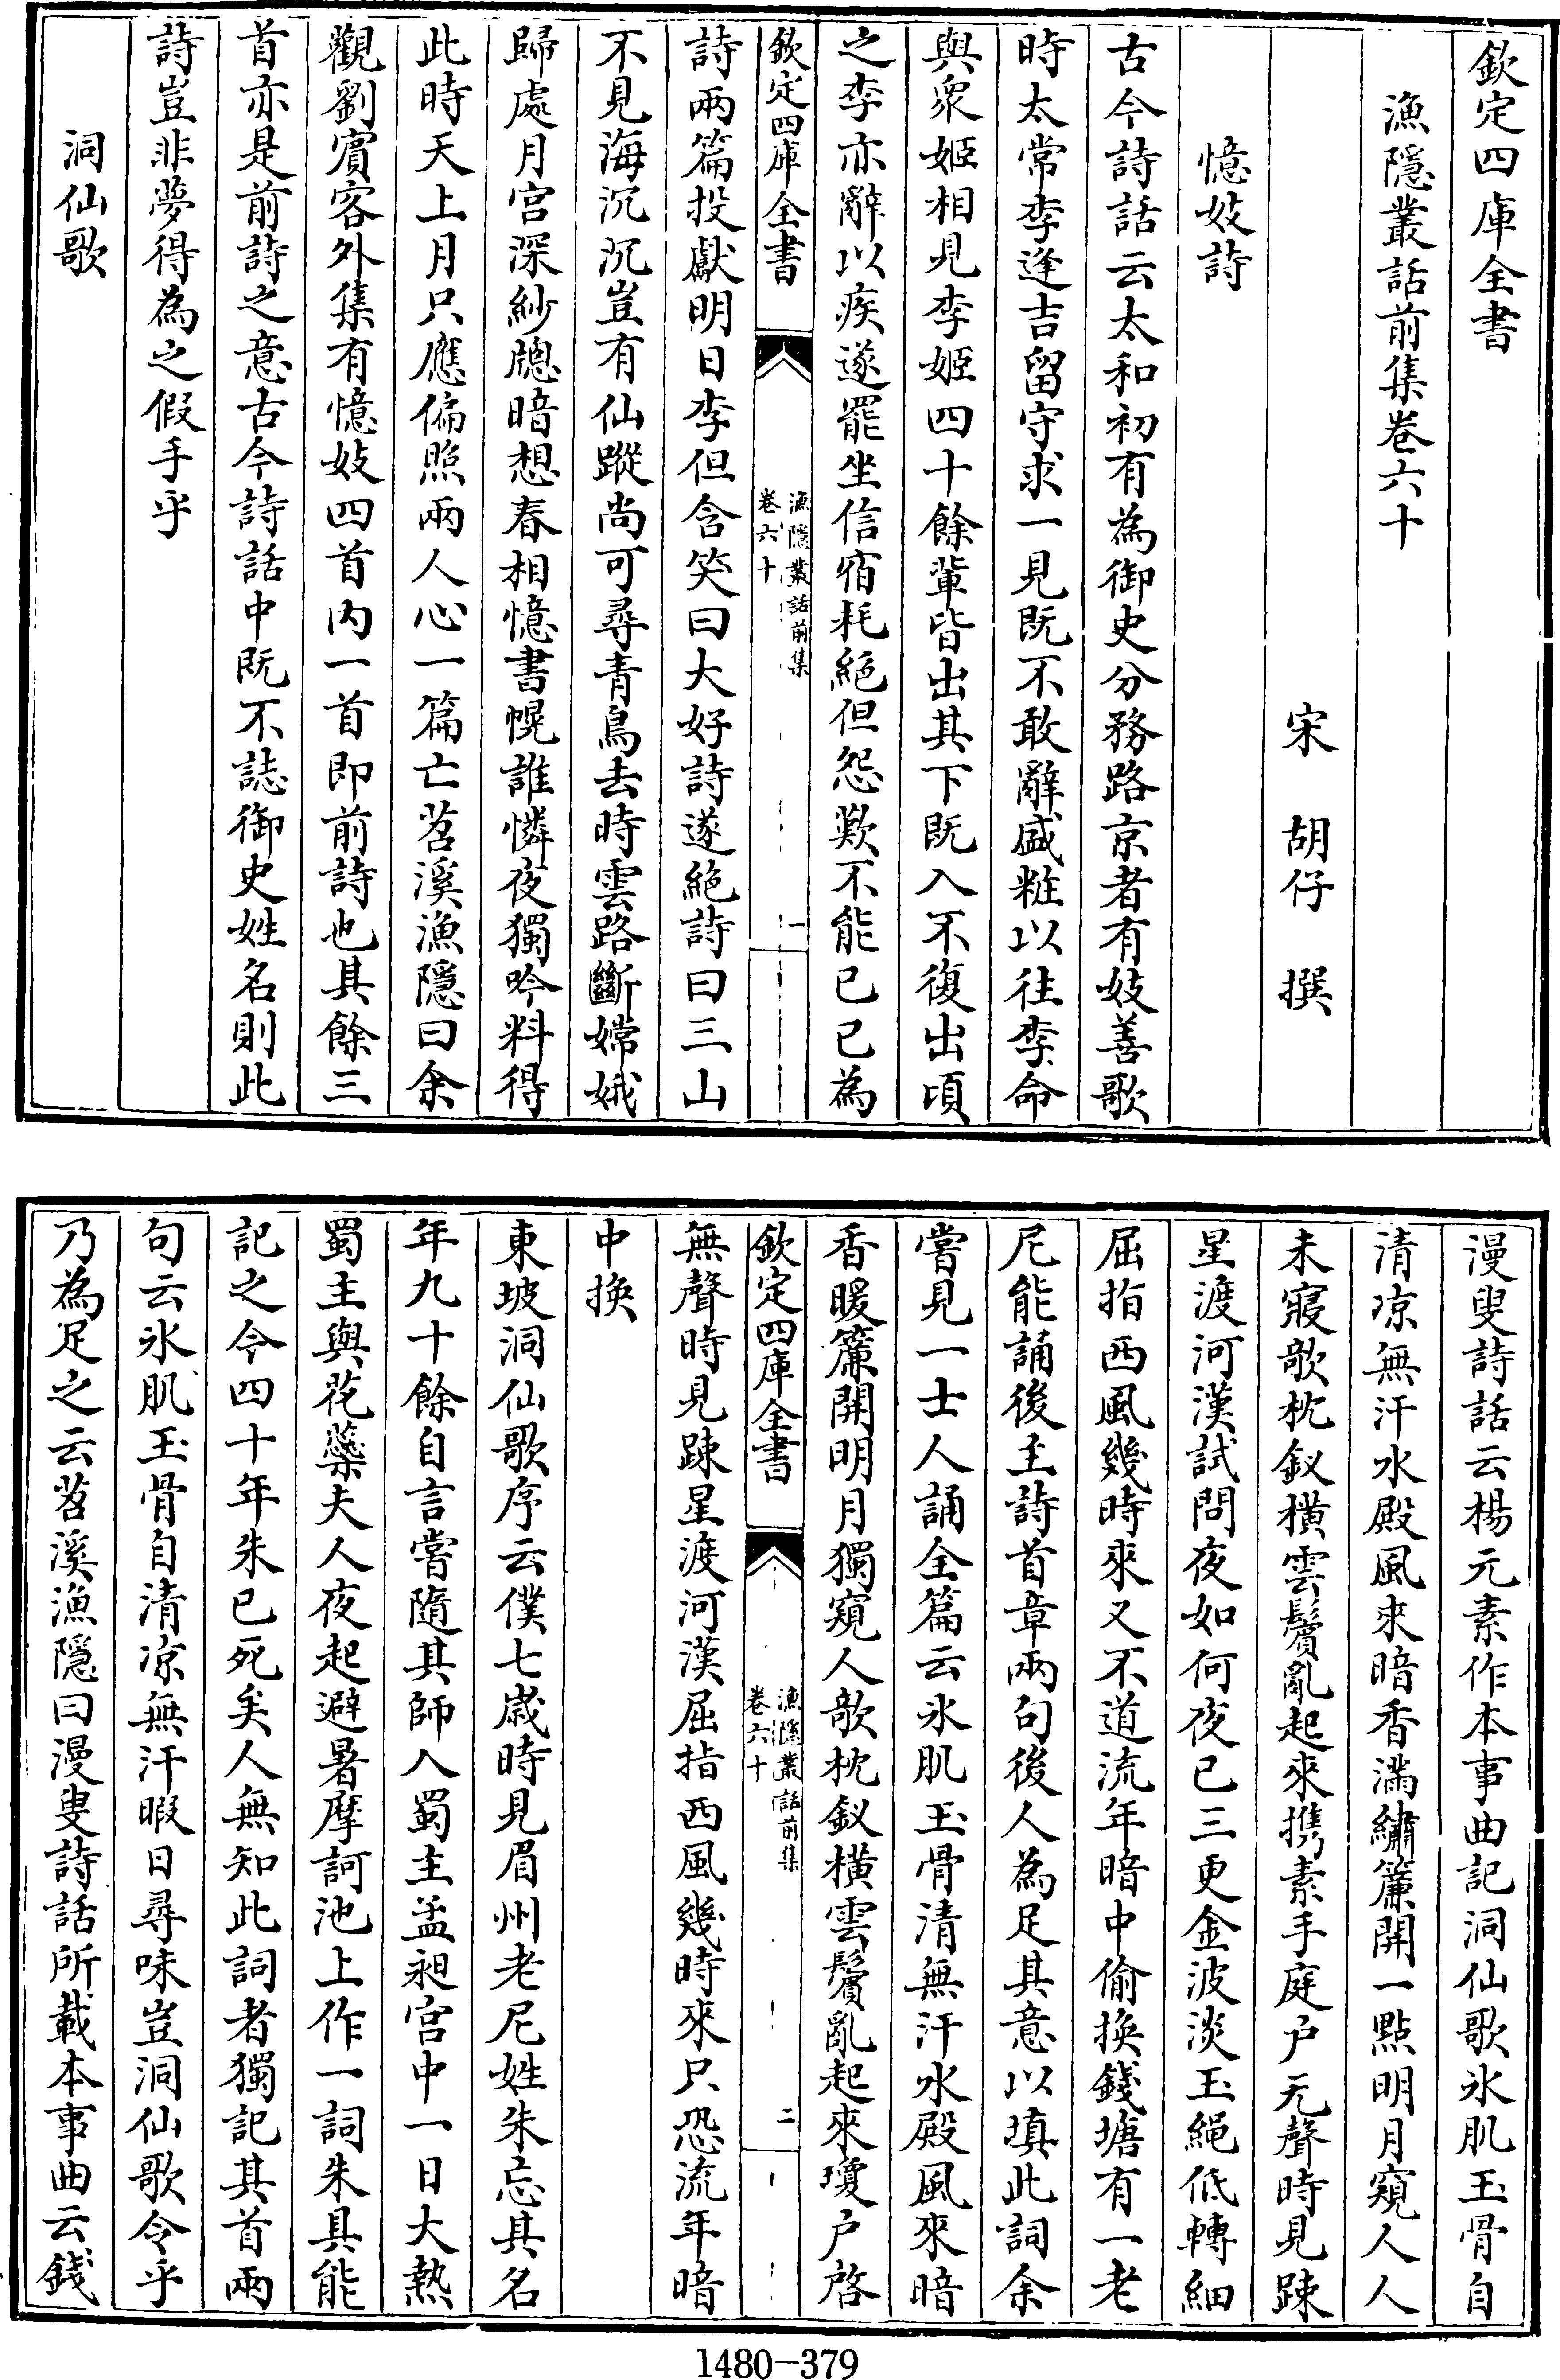 欽定四庫全書
漁隱叢話前集卷六十
宋　胡仔　撰
憶妓詩
古今詩話云太和初有為御史分務路京者有妓善歌
時太常李逢吉留守求一見既不敢辭盛粧以往李命
與衆姬相見李姬四十餘輩皆出其下既入不復出頃
之李亦辭以疾遂罷坐信宿耗絶但怨歎不能已已為
欽定四庫全書
漁隱叢話前集
卷六十
一
詩兩篇投獻明日李但含笑曰大好詩遂絶詩曰三山
不見海沉沉豈有仙蹤尚可尋青鳥去時雲路斷嫦娥
歸處月宫深紗牕暗想春相憶書幌誰憐夜獨吟料得
此時天上月只應偏照兩人心一篇亡苕溪漁隱曰余
觀劉賓客外集有憶妓四首内一首即前詩也其餘三
首亦是前詩之意古今詩話中既不誌御史姓名則此
詩豈非夢得為之假手乎
洞仙歌
漫叟詩話云楊元素作本事曲記洞仙歌氷肌玉骨自
清凉無汗水殿風來暗香滿繡簾開一點明月窺人人
未寢欹枕釵横雲鬢亂起來携素手庭户无聲時見踈
星渡河漢試問夜如何夜已三更金波淡玉繩低轉細
屈指西風幾時來又不道流年暗中偷換錢塘有一老
尼能誦後主詩首章兩句後人為足其意以填此詞余
嘗見一士人誦全篇云氷肌玉骨清無汗水殿風來暗
香暖簾開明月獨窺人欹枕釵横雲鬢亂起來瓊户啓
欽定四庫全書
漁隱叢話前集
卷六十
二
無聲時見踈星渡河漢屈指西風幾時來只恐流年暗
中換
東坡洞仙歌序云僕七歲時見眉州老尼姓朱忘其名
年九十餘自言嘗隨其師入蜀主孟昶宫中一日大熱
蜀主與花蘂夫人夜起避暑摩訶池上作一詞朱具能
記之今四十年朱已死矣人無知此詞者獨記其首兩
句云氷肌玉骨自清凉無汗暇日尋味豈洞仙歌令乎
乃為足之云苕溪漁隱曰漫叟詩話所載本事曲云錢
1480-379